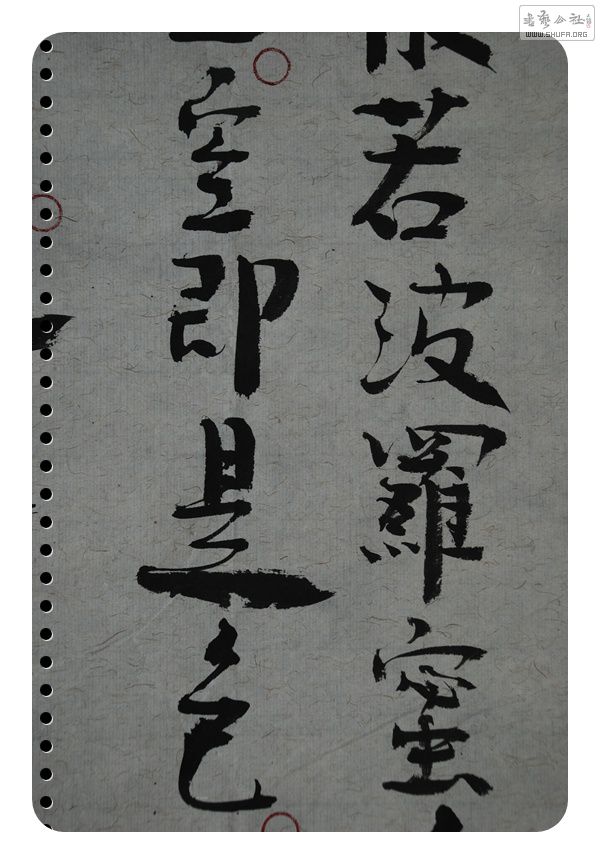 若波羅蜜
空即是色
書藝公社
WWW.SHUFA.ORG